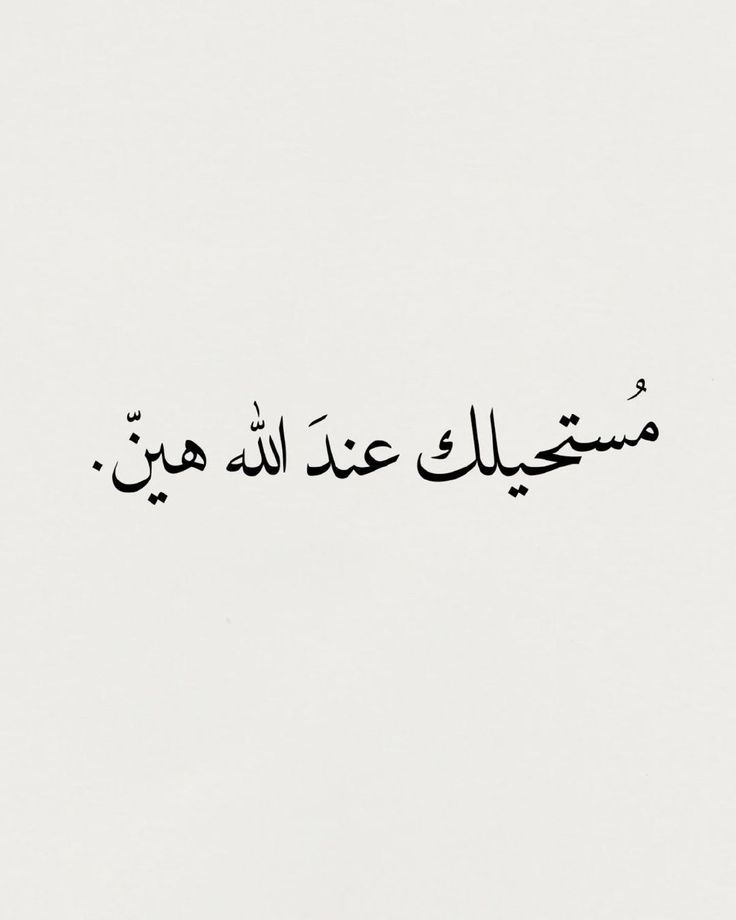 مُستحيلك عندَ الله هينّ.